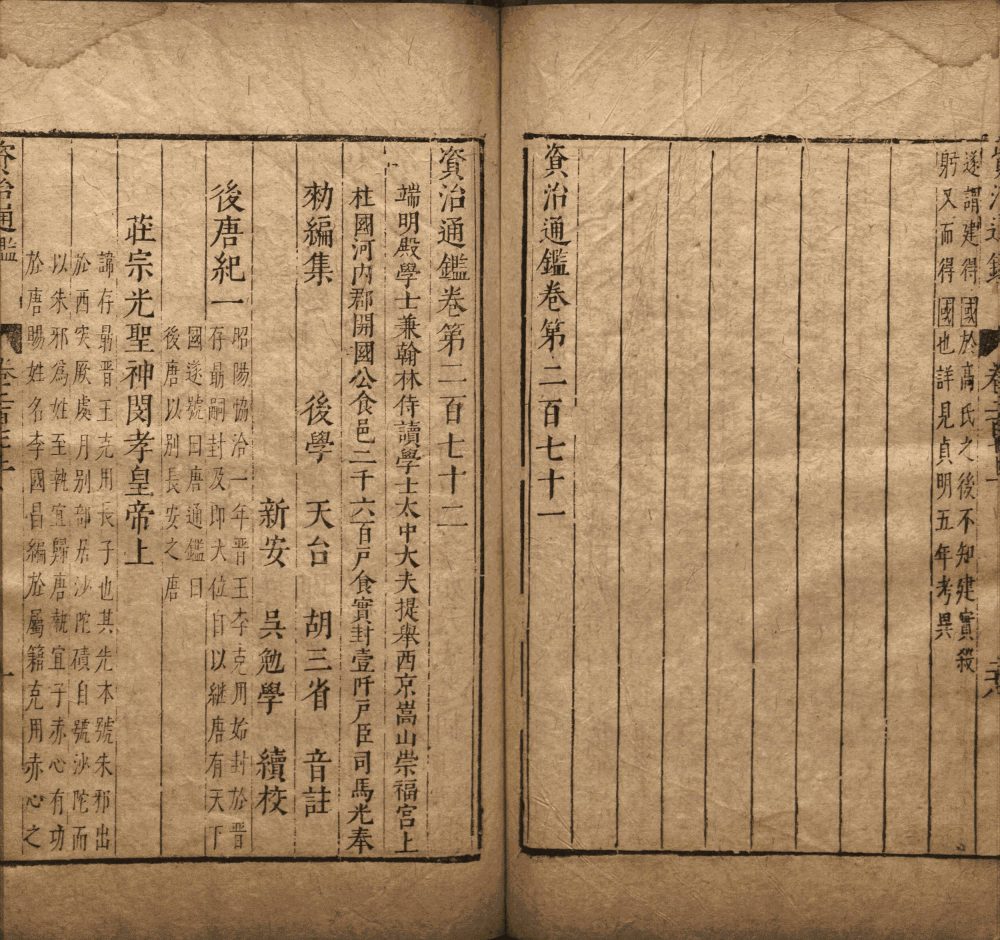 資治通鑑
卷二百七十一
二十八
遂謂建得國於高氏之後不知建實殺
躬乂而得國也詳見貞明五年考異
資治通鑑卷第二百七十一
資治通鑑卷第二百七十二
端明殿學士兼翰林侍讀學士太中大夫提舉西京嵩山崇福宮上
柱國河內郡開國公食邑二千六百戶食實封壹阡戶臣司馬光奉
勑編集 後學 天台 胡三省 音註
新安 吳勉學 續校
後唐紀一
昭陽協洽一年晉王李克用始封於晉
存勗嗣封及即大位自以繼唐有天下
國遂號曰唐通鑑曰
後唐以別長安之唐
莊宗光聖神閔孝皇帝上
諱存勗晉王克用長子也其先本號朱邪出
於西突厥處月別部居沙陀磧自號沙陀而
以朱邪為姓至執宜歸唐執宜子赤心有功
於唐賜姓名李國昌編於屬籍克用赤心之
資治通鑑
卷二百七十二
一